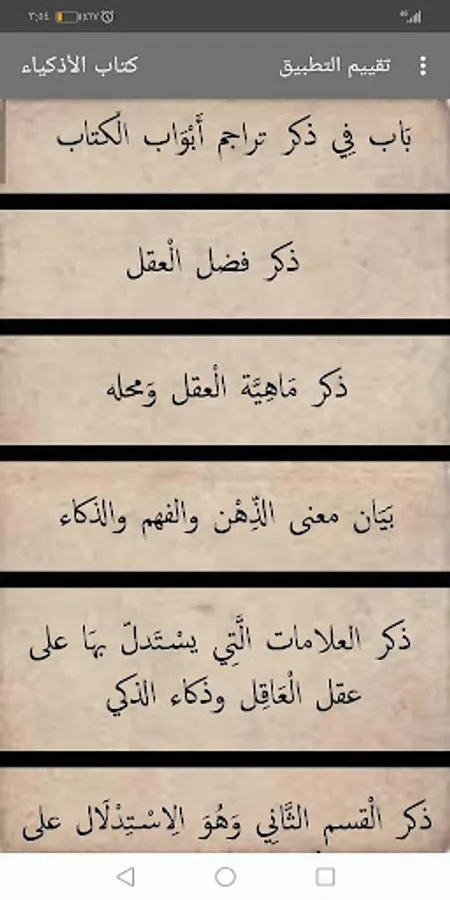 ٣:٥٤
كتاب الأذكياء
تقييم التطبيق
بَاب فِي ذكر تراجم أَبْوَاب الْكتاب
ذكر فضل الْعقل
ذكر مَاهِيَّة الْعقل وَمحله
بَيَان معنى الذِّهْن والفهم والذكاء
ذكر العلامات الَّتِي يسْتَدلّ بهَا على
عقل الْعَاقِل وذكاء الذكي
ذكر الْقسم الثَّانِي وَهُوَ الِاسْتِدْلَال على